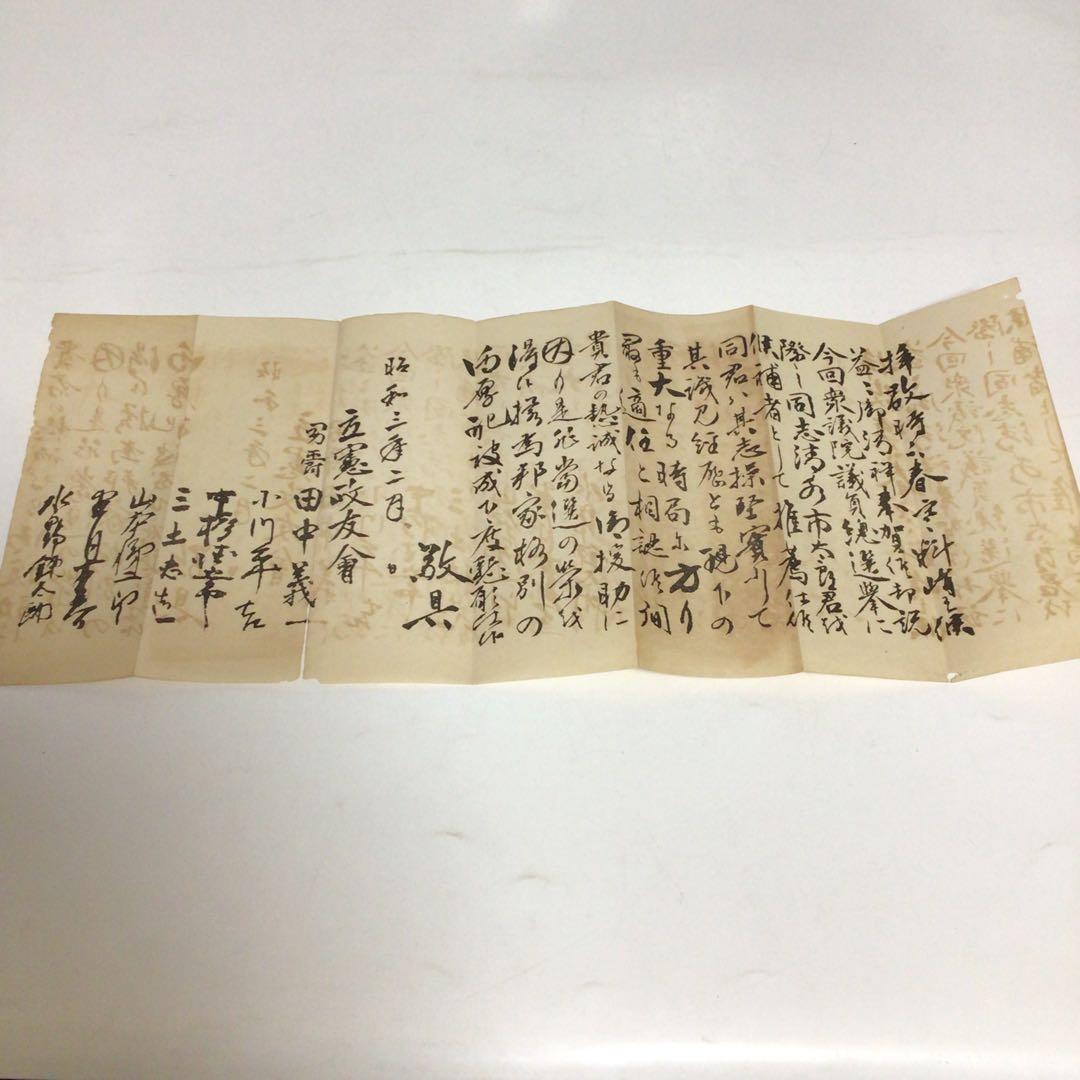 拝啓時下春寒料峭之候
益々御清祥奉賀候却説
今回衆議院議員総選挙に
際し同志清水市太郎君を
候補者として推薦仕候
同君は其志操堅実にして
其識見経歴とも現下の
重大なる時局に方り
最も適任と相認候間
貴君の熱誠なる御援助に
因り是非当選の栄を
得候様為邦家格別の
御厚配被成下度懇願候
敬具
昭和三年二月 日
立憲政友會
男爵 田中義一
小川平吉
中橋徳五郎
三土忠造
山本悌二郎
水野錬太郎